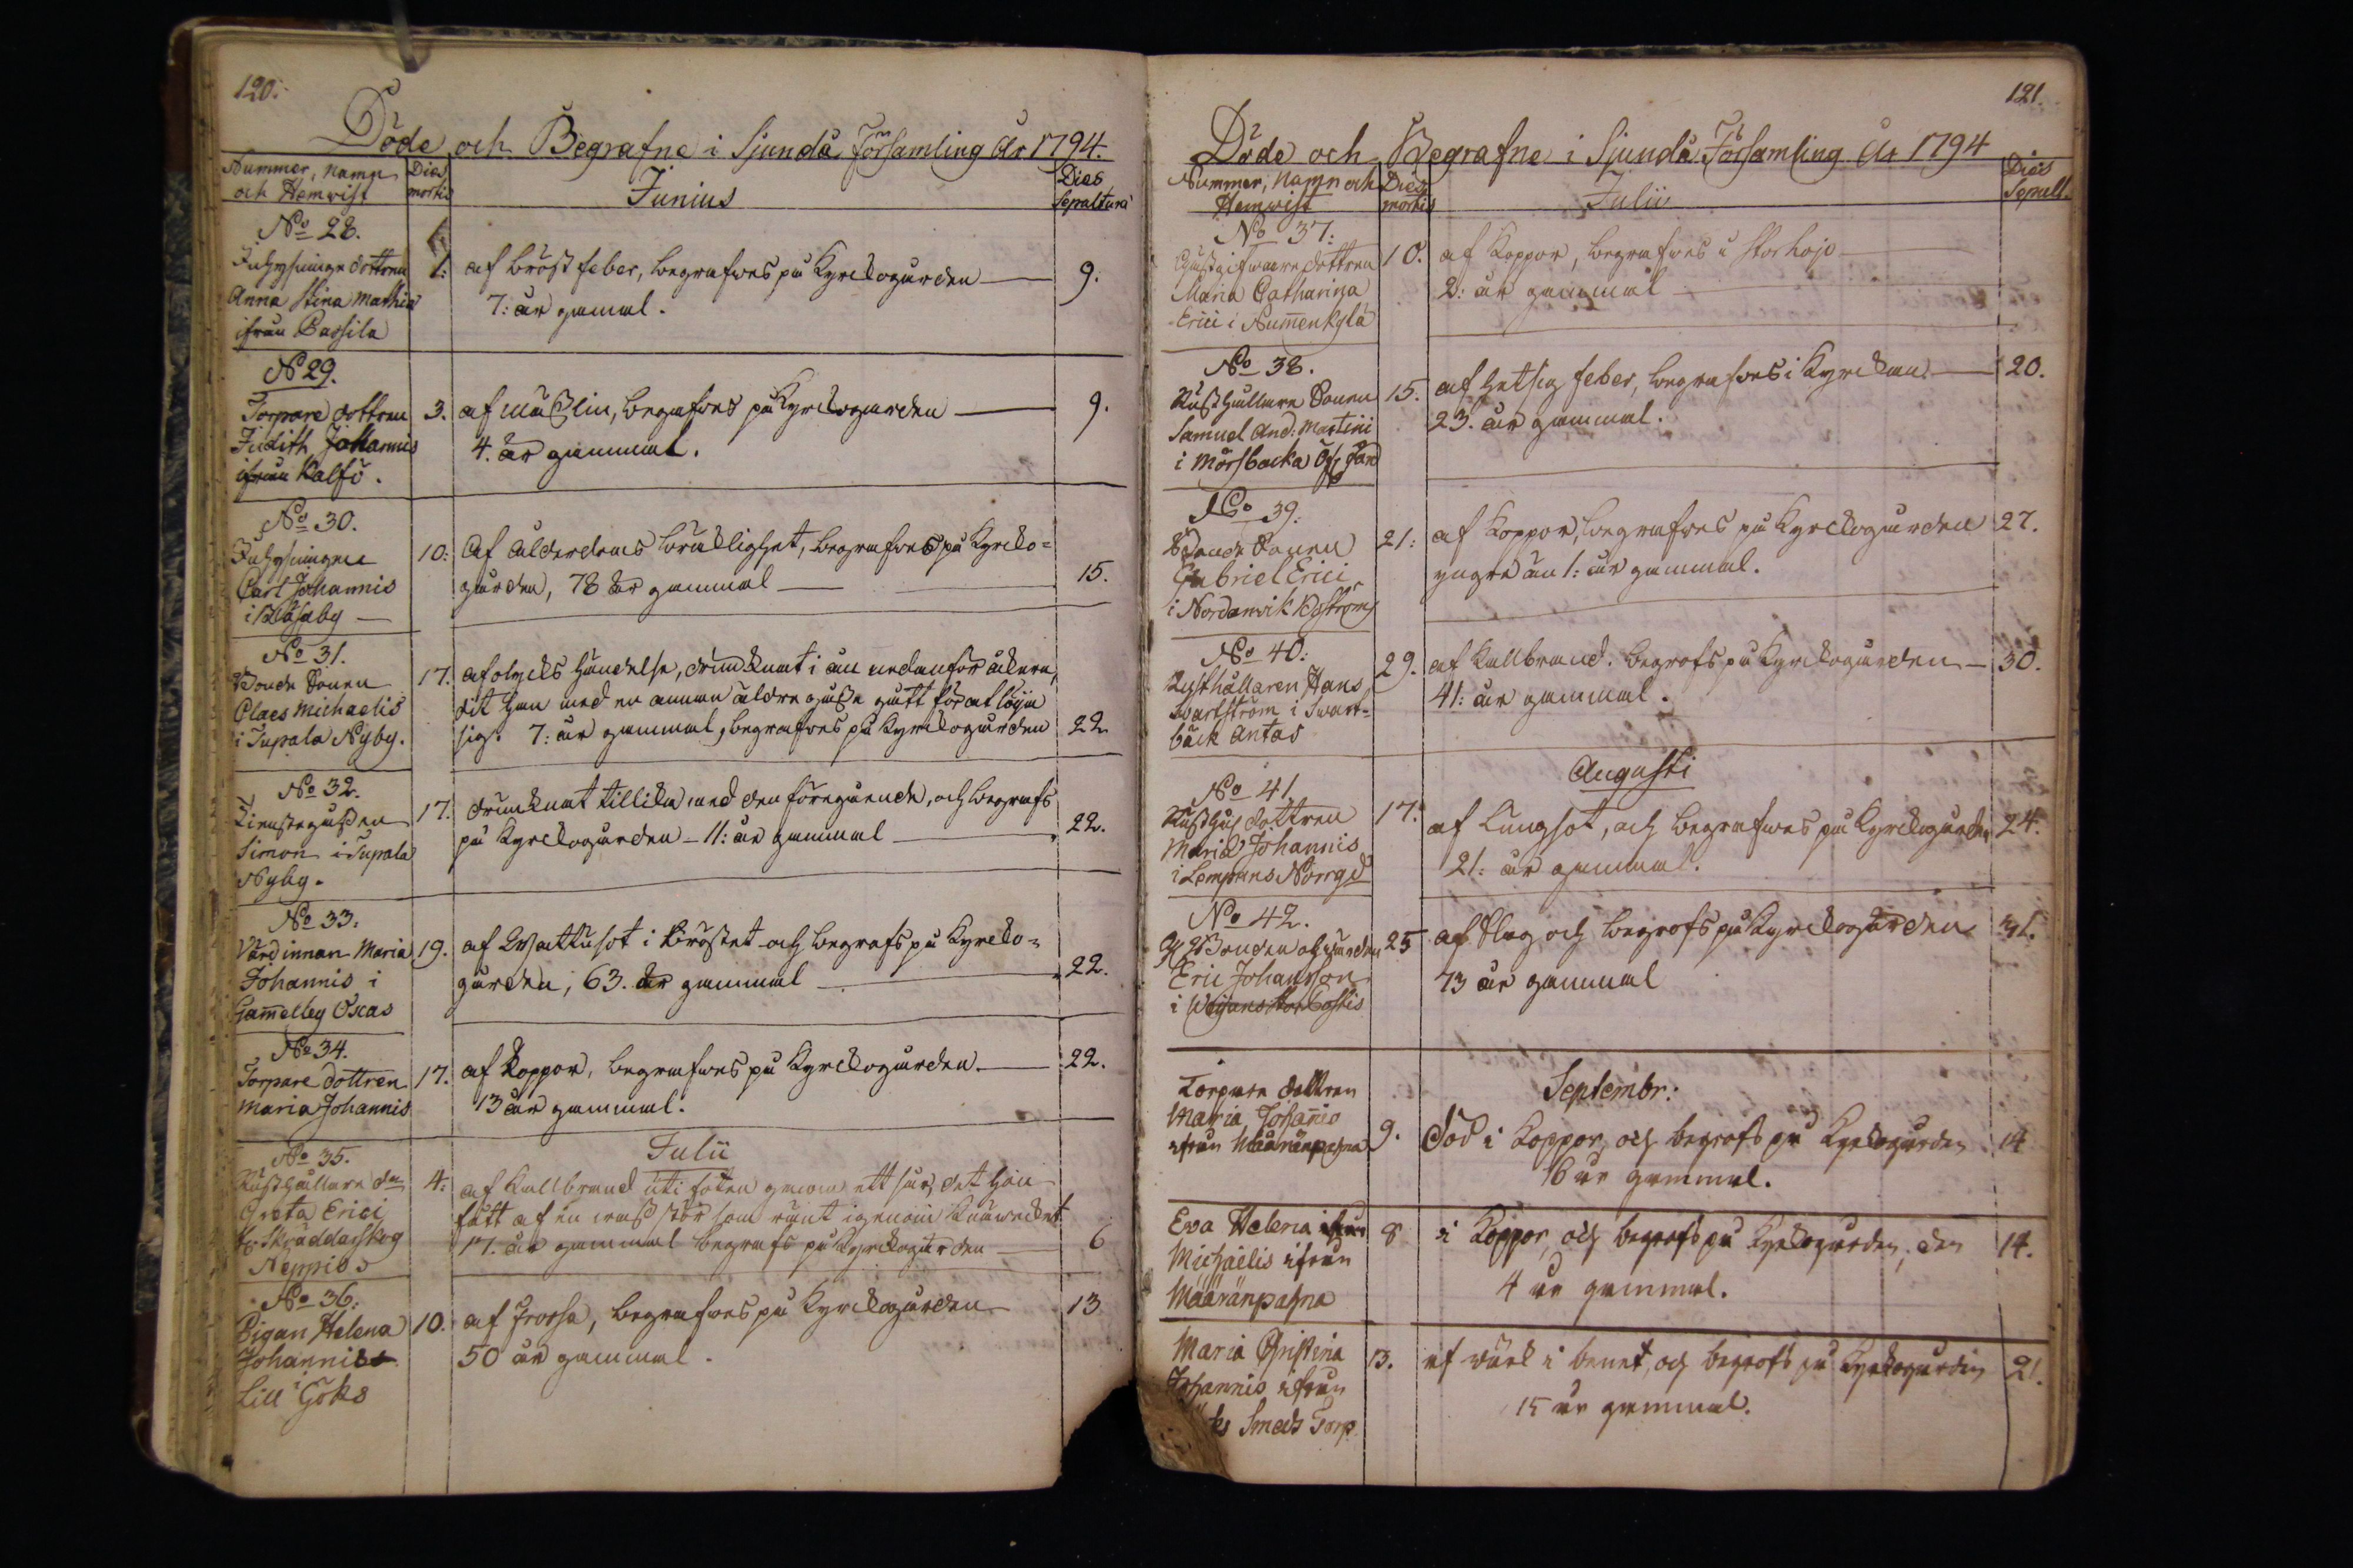 120.
Döde och Begrafne i Sjundå Församling År 1794.
Nummer, namn och Hemwist
Dies mortis
Junius
Dies Sepulturæ
No 28.
Inhysninge dottren
Anna Stina Mathiæ
ifrån Passila
1.
af bröstfeber, begrafwes på Kyrckogården
7: år gamal.
9.
No 29.
Torpare dottren
Judith Johannis
ifrån Kalfö.
3.
af mässlin, begrafwes på Kyrckogården
4. år gammal.
9.
No 30.
Inhysningen
Carl Johannis
i Wäsaby
10.
Af ålderdoms bräklighet, begrafwes på Kyrcko=
gården, 78 år gammal
15.
No 31.
Bonde Sonen
Claes Michaelis
i Tupala Nyby.
17.
af olycks händelse, drunknat i ån nedanför åkern,
dit han med en annan äldre gosse gått för at löga
sig. 7: år gammal, begrafwes på Kyrckogården
22
No 32.
Tienstegossen
Simon i Tupala
Nyby.
17.
drunknat tillika med den föregående, och begrafs
på Kyrckogården - 11: år gammal
22.
No 33.
Värdinnan Maria
Johannis i
Gam̅elby Oscas
19.
af Wattusot i Bröstet och begrafs på Kyrcko=
gården, 63. år gammal
22.
No 34.
Torpare dottren
Maria Johannis
17.
af koppor, begrafwes på Kyrckogården
13 år gammal.
22.
Julii
No 35.
Rusthållare dr
Greta Erici
fr. Skräddarskog
Neppibs
4:
af kallbrand uti foten genom ett sår, det hon
fått af en stör som runt igenom
17. år gammal begrafs på Kyrckogården
6
No 36:
Pigan Helena
Johannis
Lill Göks
10.
af frossa, begrafwes på Kyrckogården
50 år gammal.
13
121.
Döde och Begrafne i Sjundå Församling År 1794
Nummer, Namn och Hemwist
Dies mortis
Julii
Dies Sepult.
No 37:
Gästgifware dottren
Maria Catharina
Erici i Num̅enkylä
10.
af koppor, begrafwes i Storhoje
2: år gammal
No 38.
Rusthållare Sonen
Samuel And: Martini
i Mörsbacka Öfj
15.
af hetsig feber, begrafwes i Kyrckan
23. år gammal.
20.
No 39.
Bonde Sonen
Gabriel Erici
i Nordanvik Boström
21:
af koppor, begrafwes på Kyrckogården
yngre än 1: år gammal.
27.
No 40:
Rusthållaren Hans
Swartström i Swart=
bäck Antas
29.
af kallbrand. begrofs på Kyrckogården
41: år gammal.
30.
Augusti
No 41
Rusthåls dottren
Maria Johannis
i Lempans Norrgd
17.
af Lungsot, och begrafwes på Kyrckogården
21: år gammal.
24.
No 42.
Bonden
Eric Johansson
i
25
af slag och begrofs på Kyrckogården
73 år gammal
31.
Septembr:
Torpare dottren
Maria Johan̅is
ifrån Määränpahna
9.
död i koppor, och begrofs på Kyrkogården
16 år gammal.
14
Eva Helena
Michaëlis ifrån
Määränpahna
8
i koppor, och begrofs på Kyrkogården, den
4 år gammal.
14.
Maria Christina
Johannis ifrån
Smeds Torp
13.
af värk i benet, och begrofs på Kyrkogården
15 år gammal.
21.